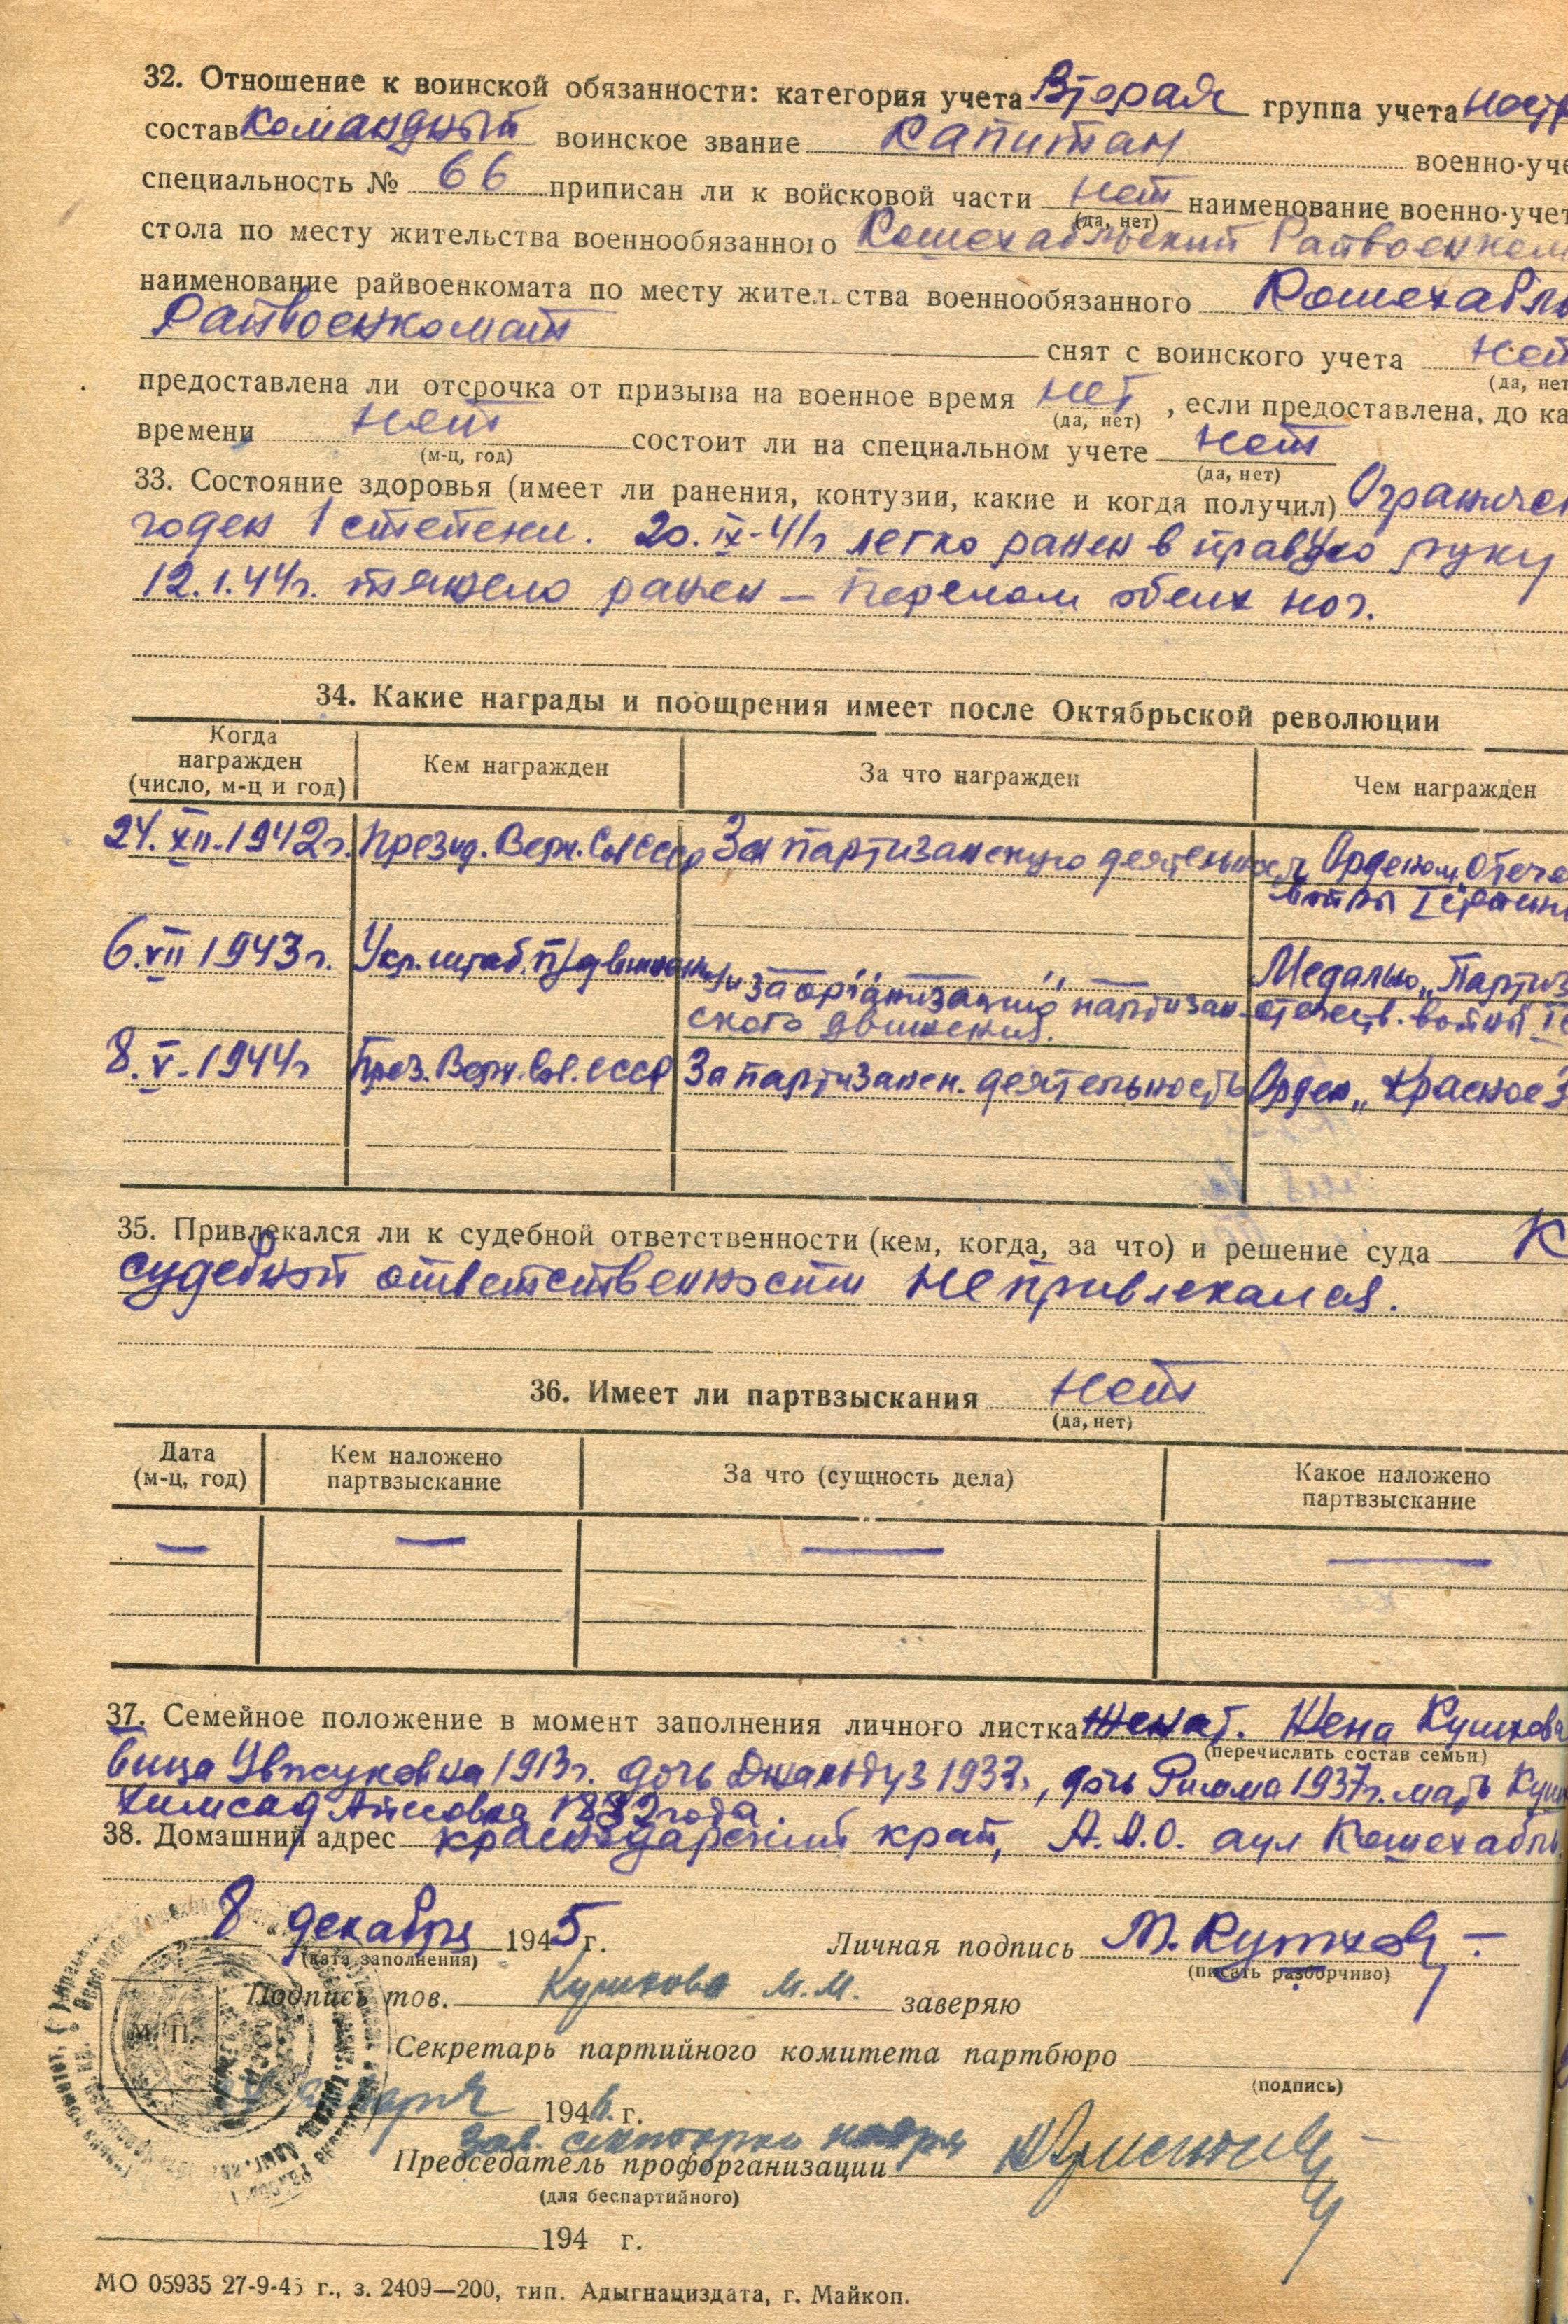 32. Отношение к воинской обязанности: категория учета Вторая группа учета
состав командный воинское звание Капитан военно-уче
специальность № 66 приписан ли к войсковой части нет наименование военно-учет
(да, нет)
стола по месту жительства военнообязанного Кошехабльский Райвоенком
наименование райвоенкомата по месту жительства военнообязанного Кошехабль
Райвоенкомат снят с воинского учета нет
(да, нет
предоставлена ли отсрочка от призыва на военное время нет , если предоставлена, до ка
(да, нет)
времени нет состоит ли на специальном учете нет
(м-ц, год) (да, нет)
33. Состояние здоровья (имеет ли ранения, контузии, какие и когда получил) Ограничен
годен 1 степени. 20.IX-41г легко ранен в правую руку
12.1.44г. тяжело ранен — перелом обеих ног.
34. Какие награды и поощрения имеет после Октябрьской революции
Когда награжден (число, м-ц и год) Кем награжден За что награжден Чем награжден
24.XII.1942г. Презид. Верх. Сов СССР За партизанскую деятельность Орденом „Отече
войны I степени
6.VII 1943г. Укр. штаб. п/движения За организацию партизан- Медалью „Партиз
ского движения. отечеств. войны I
8.V.1944г През. Верх. Сов. СССР За партизанск. деятельность Орден „Красное З
35. Привлекался ли к судебной ответственности (кем, когда, за что) и решение суда К
судебной ответственности не привлекался.
36. Имеет ли партвзыскания нет
(да, нет)
Дата (м-ц, год) Кем наложено партвзыскание За что (сущность дела) Какое наложено партвзыскание
— — — —
37. Семейное положение в момент заполнения личного листка Женат. Жена Кушхова
(перечислить состав семьи)
1913г. дочь Джальдуз 1933г, дочь Рита 1937г. мать Куш
1882 года.
38. Домашний адрес Краснодарский край, А.А.О. аул Кошехабль.
8 декабря 1945 г. Личная подпись М. Кушхов
(дата заполнения) (писать разборчиво)
Подпись тов. Кушхова М.М. заверяю
М. П.
Секретарь партийного комитета партбюро
(подпись)
января 1946. г.
Зав. сектором кадров
Председатель профорганизации
(для беспартийного)
194 г.
МО 05935 27-9-45 г., з. 2409—200, тип. Адыгнациздата, г. Майкоп.